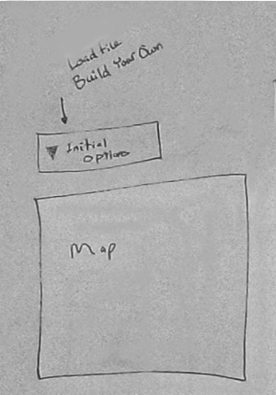 Load File
Build Your Own
Initial
Option
Map